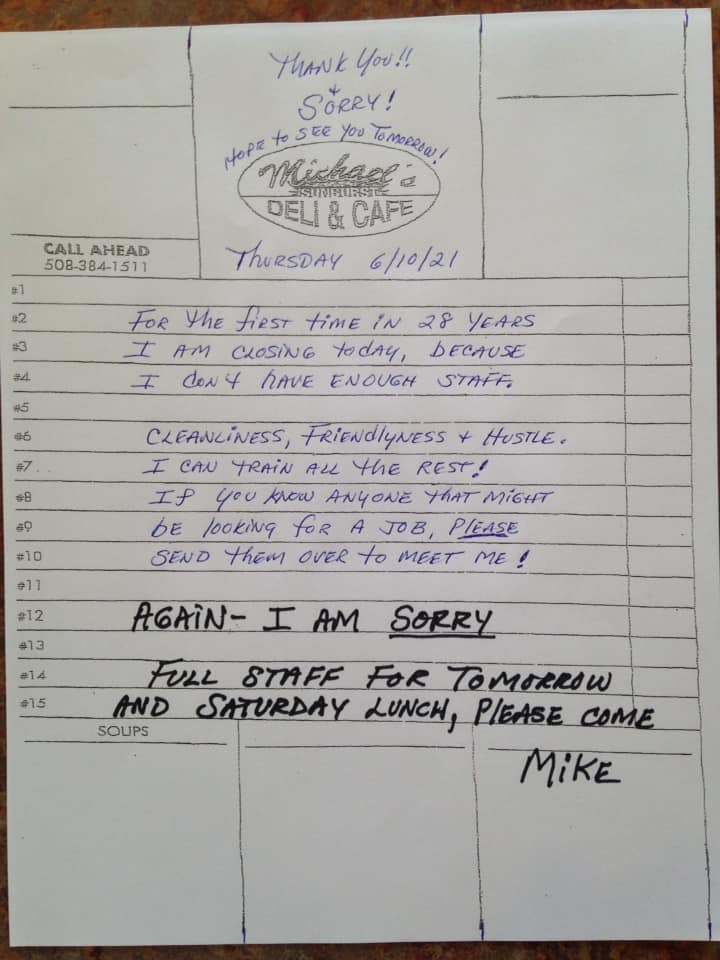 THANK YOU!!
+
SORRY!
HOPE to SEE YOU TOMORROW!
Michael's
SUNBURST
DELI & CAFE
CALL AHEAD
508-384-1511
THURSDAY 6/10/21
#1
#2 FOR the first time in 28 YEARS
#3 I AM CLOSING today, BECAUSE
#4 I don't HAVE ENOUGH STAFF.
#5
#6 CLEANLINESS, FRIENdlyNESS + HUSTLE.
#7 I CAN TRAIN ALL the REST!
#8 If you know ANYONE that MIGHT
#9 be looking for A JOB, PLEASE
#10 SEND them OVER to MEET ME!
#11
#12 AGAiN- I AM SORRY
#13
#14 FULL STAFF FOR TOMORROW
#15 AND SATURDAY LUNCH, PLEASE COME
SOUPS
MiKE